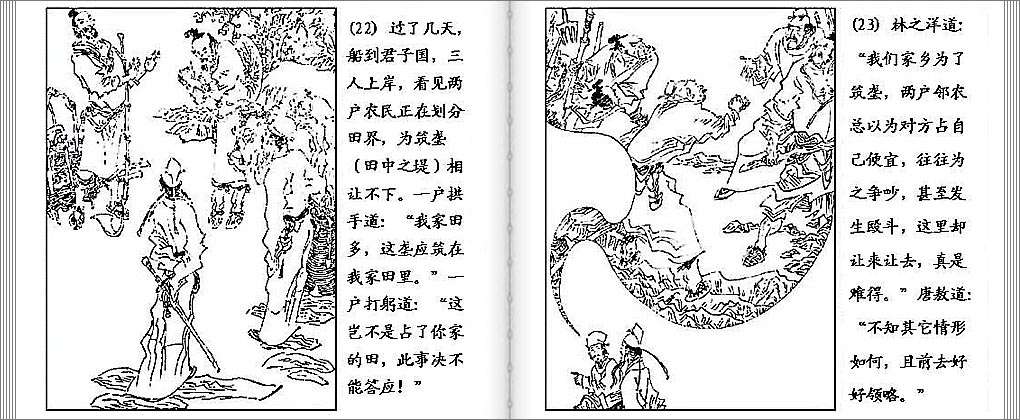 (22) 过了几天，
船到君子国，三
人上岸，看见两
户农民正在划分
田界，为筑垄
（田中之堤）相
让不下。一户拱
手道：“我家田
多，这垄应筑在
我家田里。”一
户打躬道：“这
岂不是占了你家
的田，此事决不
能答应！”
(23) 林之洋道：
“我们家乡为了
筑垄，两户邻农
总以为对方占自
己便宜，往往为
之争吵，甚至发
生殴斗，这里却
让来让去，真是
难得。”唐敖道：
“不知其它情形
如何，且前去好
好领略。”